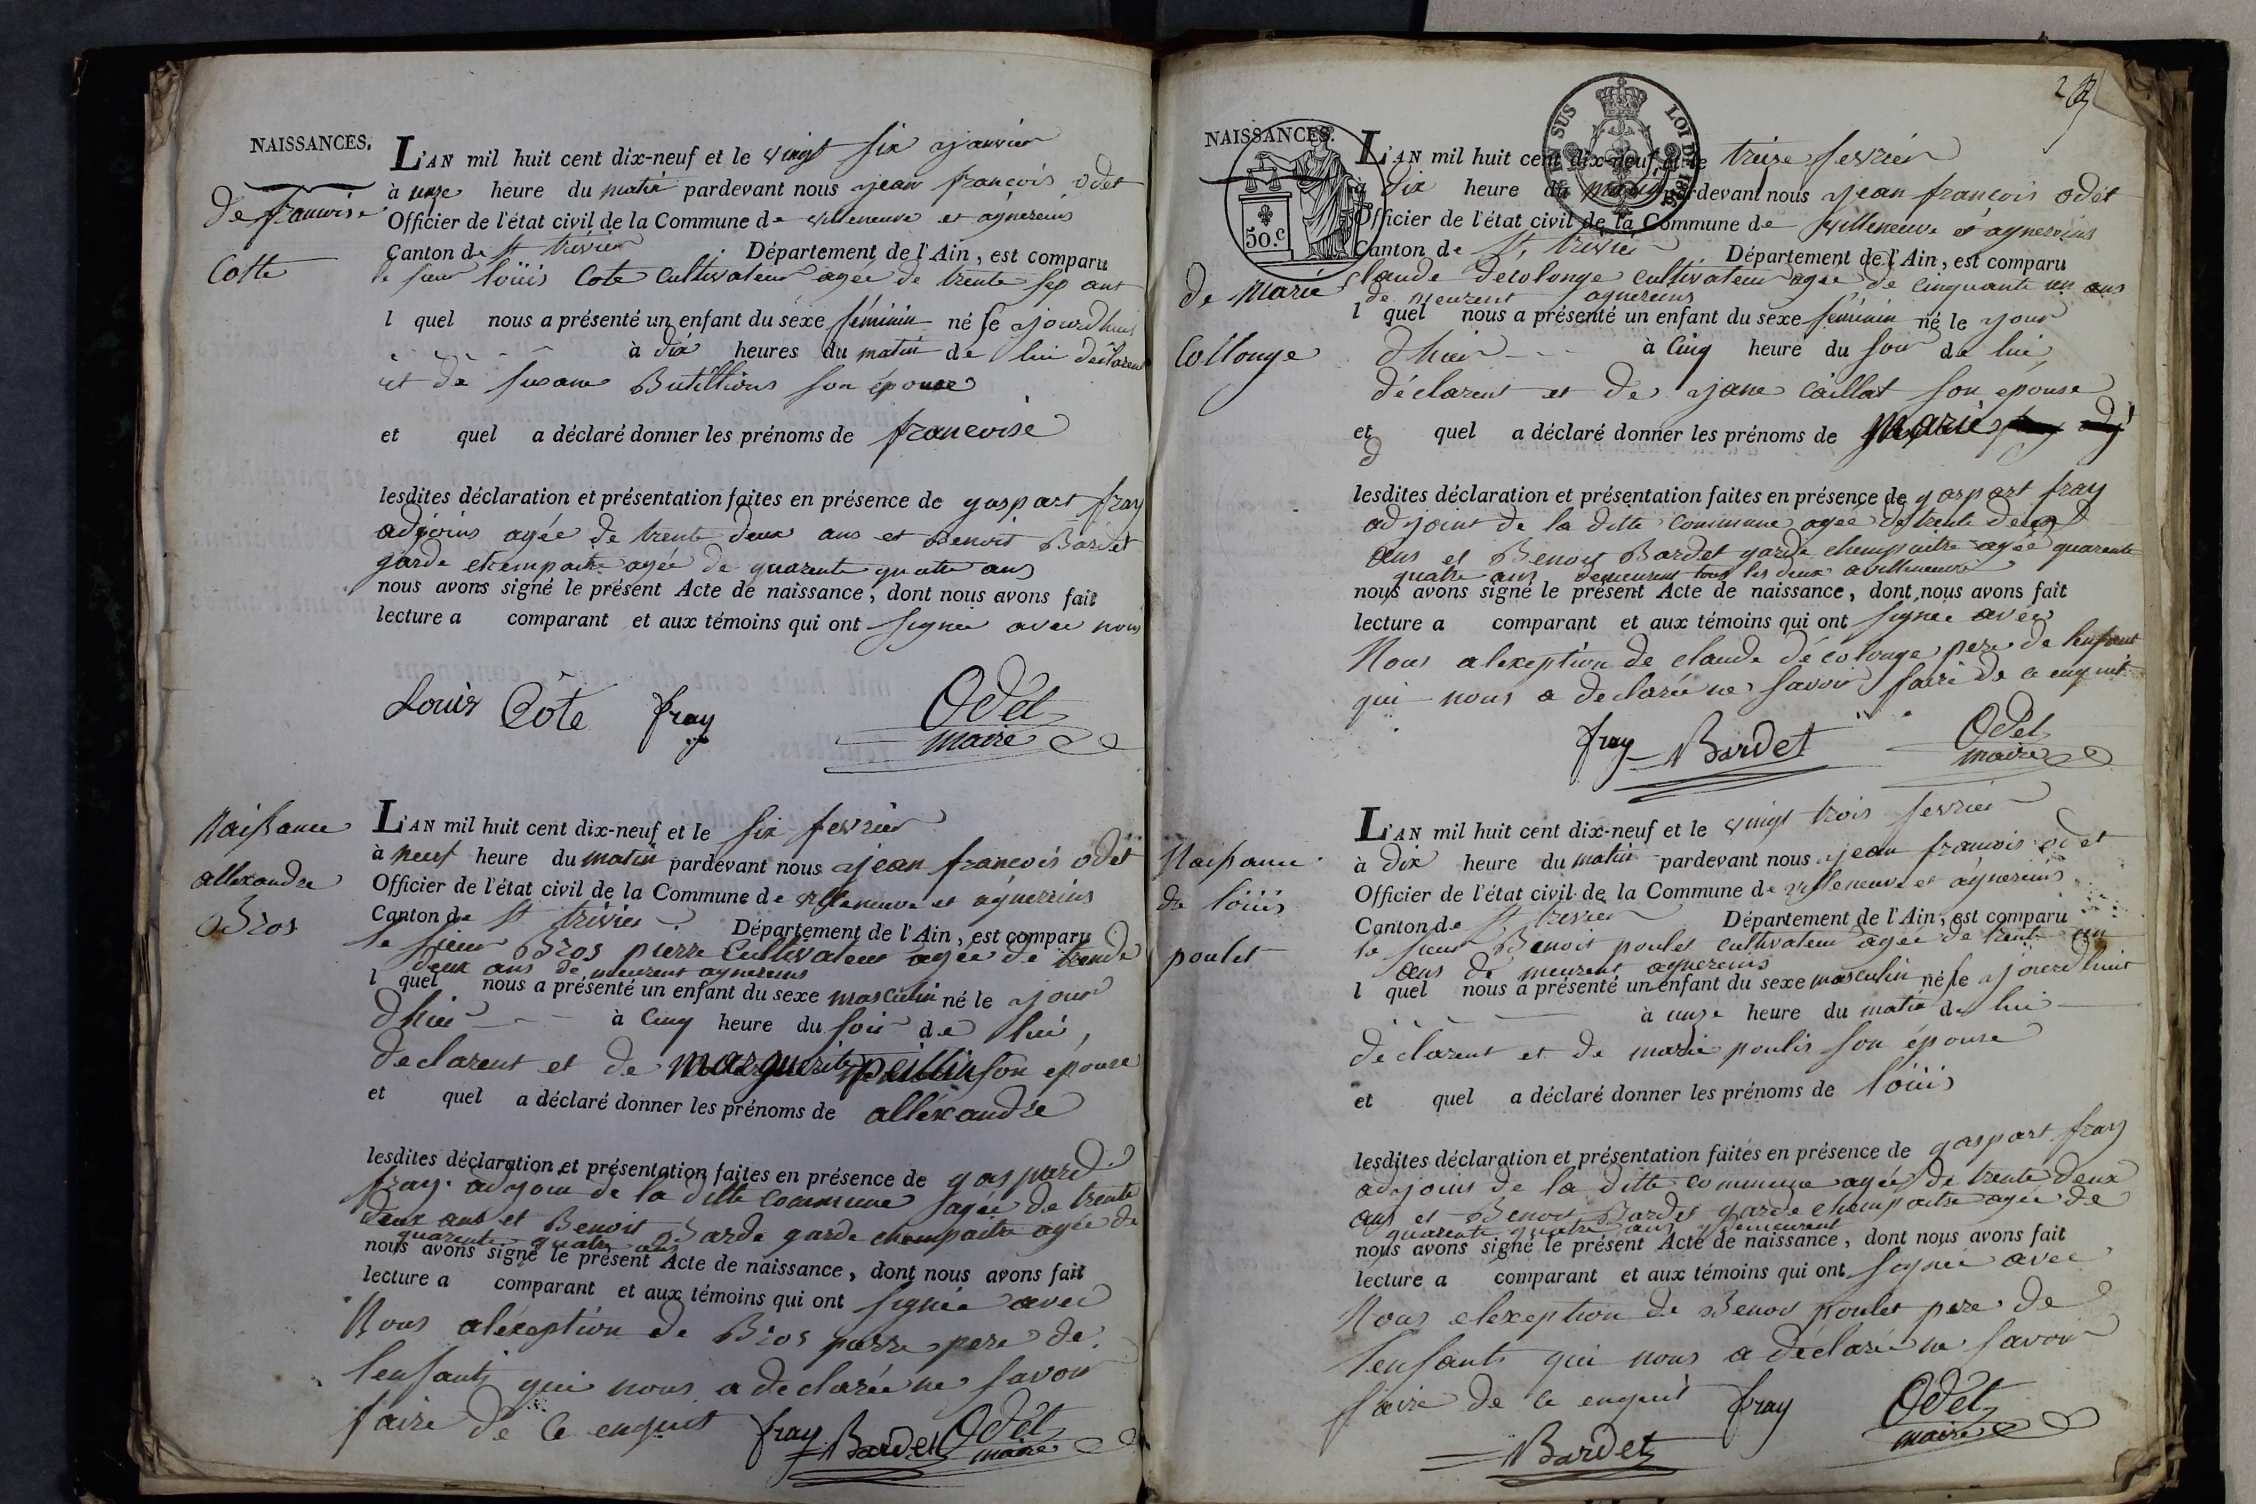 NAISSANCES.
de francoise
Cotte
L'AN mil huit cent dix-neuf et le vingt six janvier
à unze heure du matin pardevant nous jean francois odet
Officier de l'état civil de la Commune de villeneuve et agnereins
Canton de st trivier Département de l'Ain, est comparu
le sieur loüis Cote Cultivateur agée de trente sep ans
l quel nous a présenté un enfant du séxe féminin né le ajourdhuis
à dix heures du matin de lui déclarent
et de susane Butillions son épouse
et quel a déclaré donner les prénoms de francoise
lesdites déclaration et présentation faites en présence de gaspart fray
adjoins agée de trente deux ans et Benoit Bardet
garde chempaitre agée de quarente quatre ans
nous avons signé le présent Acte de naissance, dont nous avons fait
lecture a comparant et aux témoins qui ont signée avec nous
Louis Côte fray Odet
maire
Naissance
allexandre
Bros
L'AN mil huit cent dix-neuf et le six fevrier
à neuf heure du matin pardevant nous jean francois odet
Officier de l'état civil de la Commune de villeneuve et agnereins
Canton de st trivier Département de l'Ain, est comparu
le sieur Bros pierre Cultivateur agée de trente
deux ans de meurent agnereins
l quel nous a présenté un enfant du sexe masculin né le jour
dhier à Cinq heure du soir de lui
declarent et de marguerite peillin son épouse
et quel a déclaré donner les prénoms de alléxandre
lesdites déclaration et présentation faites en présence de gaspard
fray adjoin de la ditte commune agée de trente
deux ans et Benoit Barde garde chempaitre agée de
quarente quatre ans
nous avons signé le présent Acte de naissance, dont nous avons fait
lecture a comparant et aux témoins qui ont signée avec
Nous aléxeption de Bros pierre pere de
lenfants qui nous a declarée ne savoir
faire de ce enquit fray Bardet Odet
maire
NAISSANCES.
50.c
EN SUS LOI DE 1816
de Marie
Collonge
L'AN mil huit cent dix-neuf et le treize fevrier
à dix heure du matin pardevant nous jean francois odet
Officier de l'état civil de la Commune de villeneuve et agnereins
Canton de St trivier Département de l'Ain, est comparu
Claude decolonge cultivateur agée de cinquante un ans
de meurent agnereins
l quel nous a présenté un enfant du sexe féminin né le jour
dhier à Cinq heure du soir de lui
déclarent et de jane Caillat son epouse
et quel a déclaré donner les prénoms de Marie
lesdites déclaration et présentation faites en présence de gaspart fray
adjoint de la ditte commune agée de trente deux
ans et Benoit Bardet garde chempaitre agée quarente
quatre ans demeurent tous les deux a villeneuve
nous avons signé le présent Acte de naissance, dont nous avons fait
lecture a comparant et aux témoins qui ont signée avec
Nous alexeption de claude décolonge pere de lenfant
qui nous a declarée ne savoir faire de ce enquit
fray Bardet Odet
maire
Naissance
de loüis
poulet
L'AN mil huit cent dix-neuf et le vingt trois fevrier
à dix heure du matin pardevant nous jean francois odet
Officier de l'état civil de la Commune de villeneuve et agnereins
Canton de st trivier Département de l'Ain, est comparu
le sieur Benoit poulet cultivateur agée de trente un
ans de meurent agnereins
l quel nous a présenté un enfant du sexe masculin né le ajourdhuit
à unze heure du matin de lui
déclarent et de marie poulis son épouse
et quel a déclaré donner les prénoms de loüis
lesdites déclaration et présentation faites en présence de gaspart fray
adjoins de la ditte commune agée de trente deux
ans et Benoit Bardet garde chempaitre agée de
quarente quatre ans y demeurent
nous avons signé le présent Acte de naissance, dont nous avons fait
lecture a comparant et aux témoins qui ont signée avec
Nous elexeption de Benoit poulet pere de
lenfants qui nous a déclarée ne savoir
faire de ce enquit fray Odet
maire
Bardet